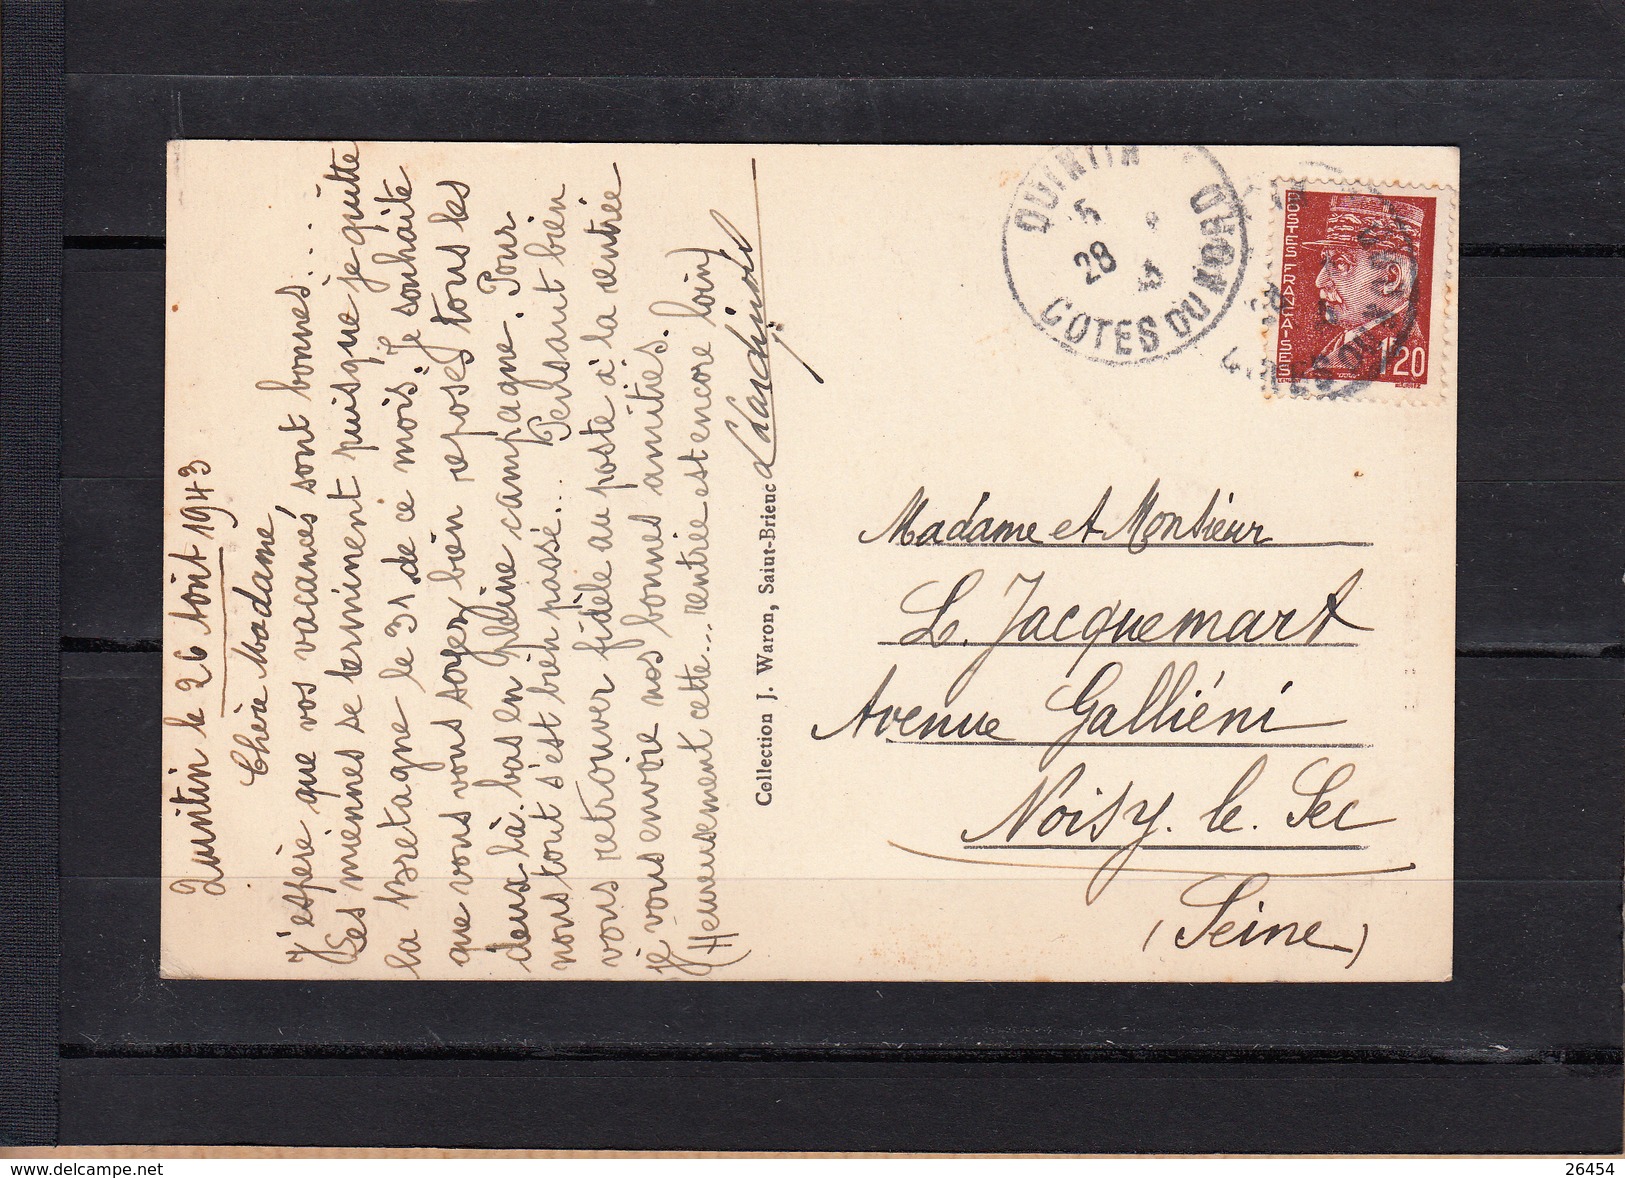 Quintin le 26 Août 1943
Chère Madame,
J'espère que vos vacances sont bonnes...
Les miennes se terminent puisque je quitte
la Bretagne le 31 de ce mois. Je souhaite
que vous vous soyez bien reposés tous les
deux là-bas en pleine campagne. Pour
nous tout s'est bien passé... Pensant bien
vous retrouver fidèle au poste à la rentrée
je vous envoie nos bonnes amitiés.
(Heureusement cette... rentrée est encore loin)
Collection J. Waron, Saint-Brieuc
QUINTIN
28
COTES DU NORD
POSTES FRANÇAISES
1F20
Madame et Monsieur
L. Jacquemart
Avenue Galliéni
Noisy-le-Sec
(Seine)
www.delcampe.net
26454